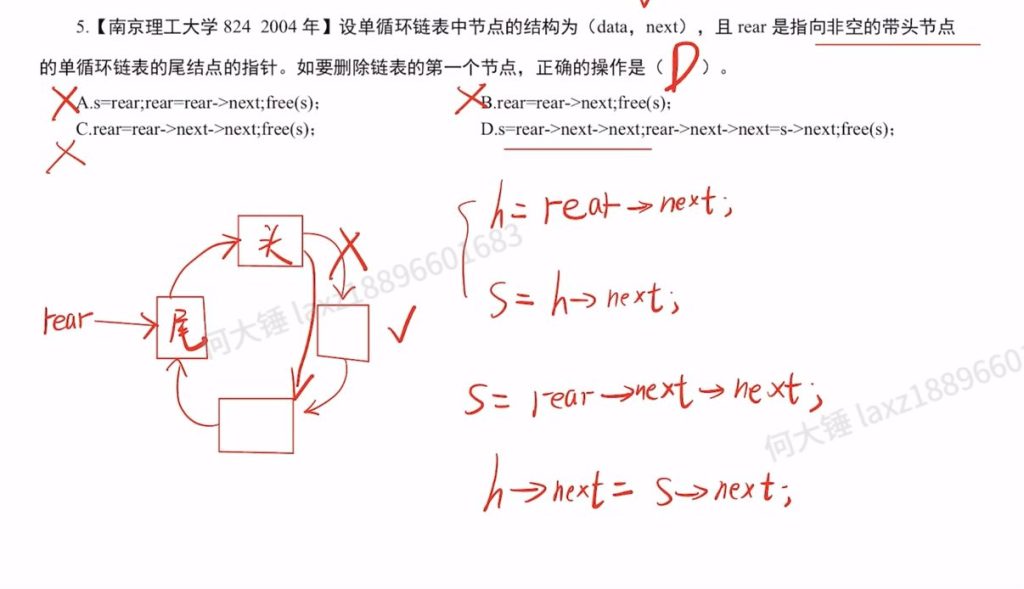 5.【南京理工大学 824 2004 年】设单循环链表中节点的结构为（data，next），且 rear 是指向非空的带头节点
的单循环链表的尾结点的指针。如要删除链表的第一个节点，正确的操作是（ D ）。
A.s=rear;rear=rear->next;free(s);
B.rear=rear->next;free(s);
C.rear=rear->next->next;free(s);
D.s=rear->next->next;rear->next->next=s->next;free(s);
h=rear→next;
头
s=h→next;
rear
尾
s=rear→next→next;
h→next=s→next;
何大锤 laxz18896601683
何大锤 laxz1889660